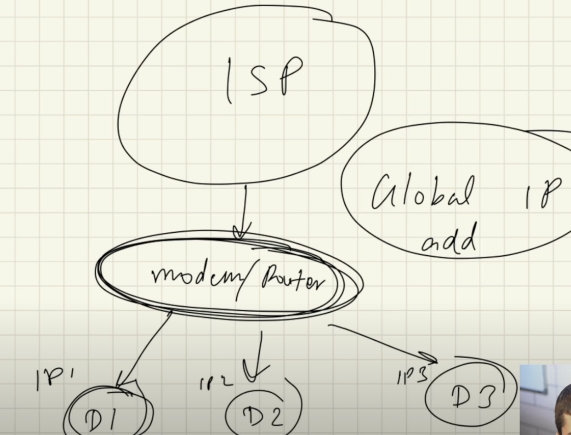 ISP
Global IP
add
modem/Router
IP1
D1
IP2
D2
IP3
D3